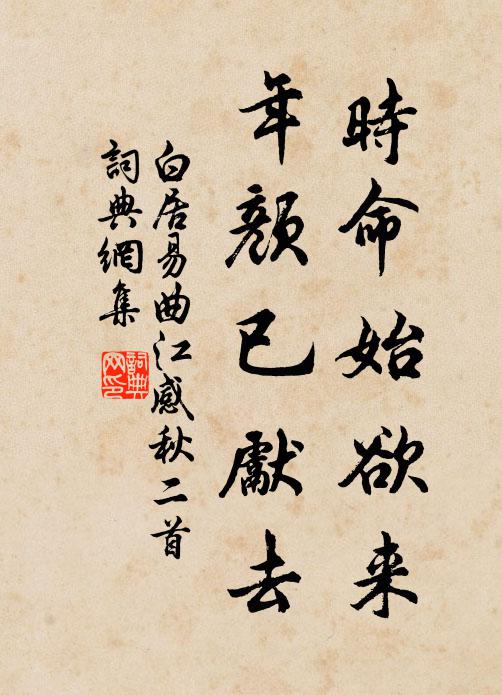 時命始欲来
年顏已獻去
白居易曲江感秋二首
詞典網集
詞典网印